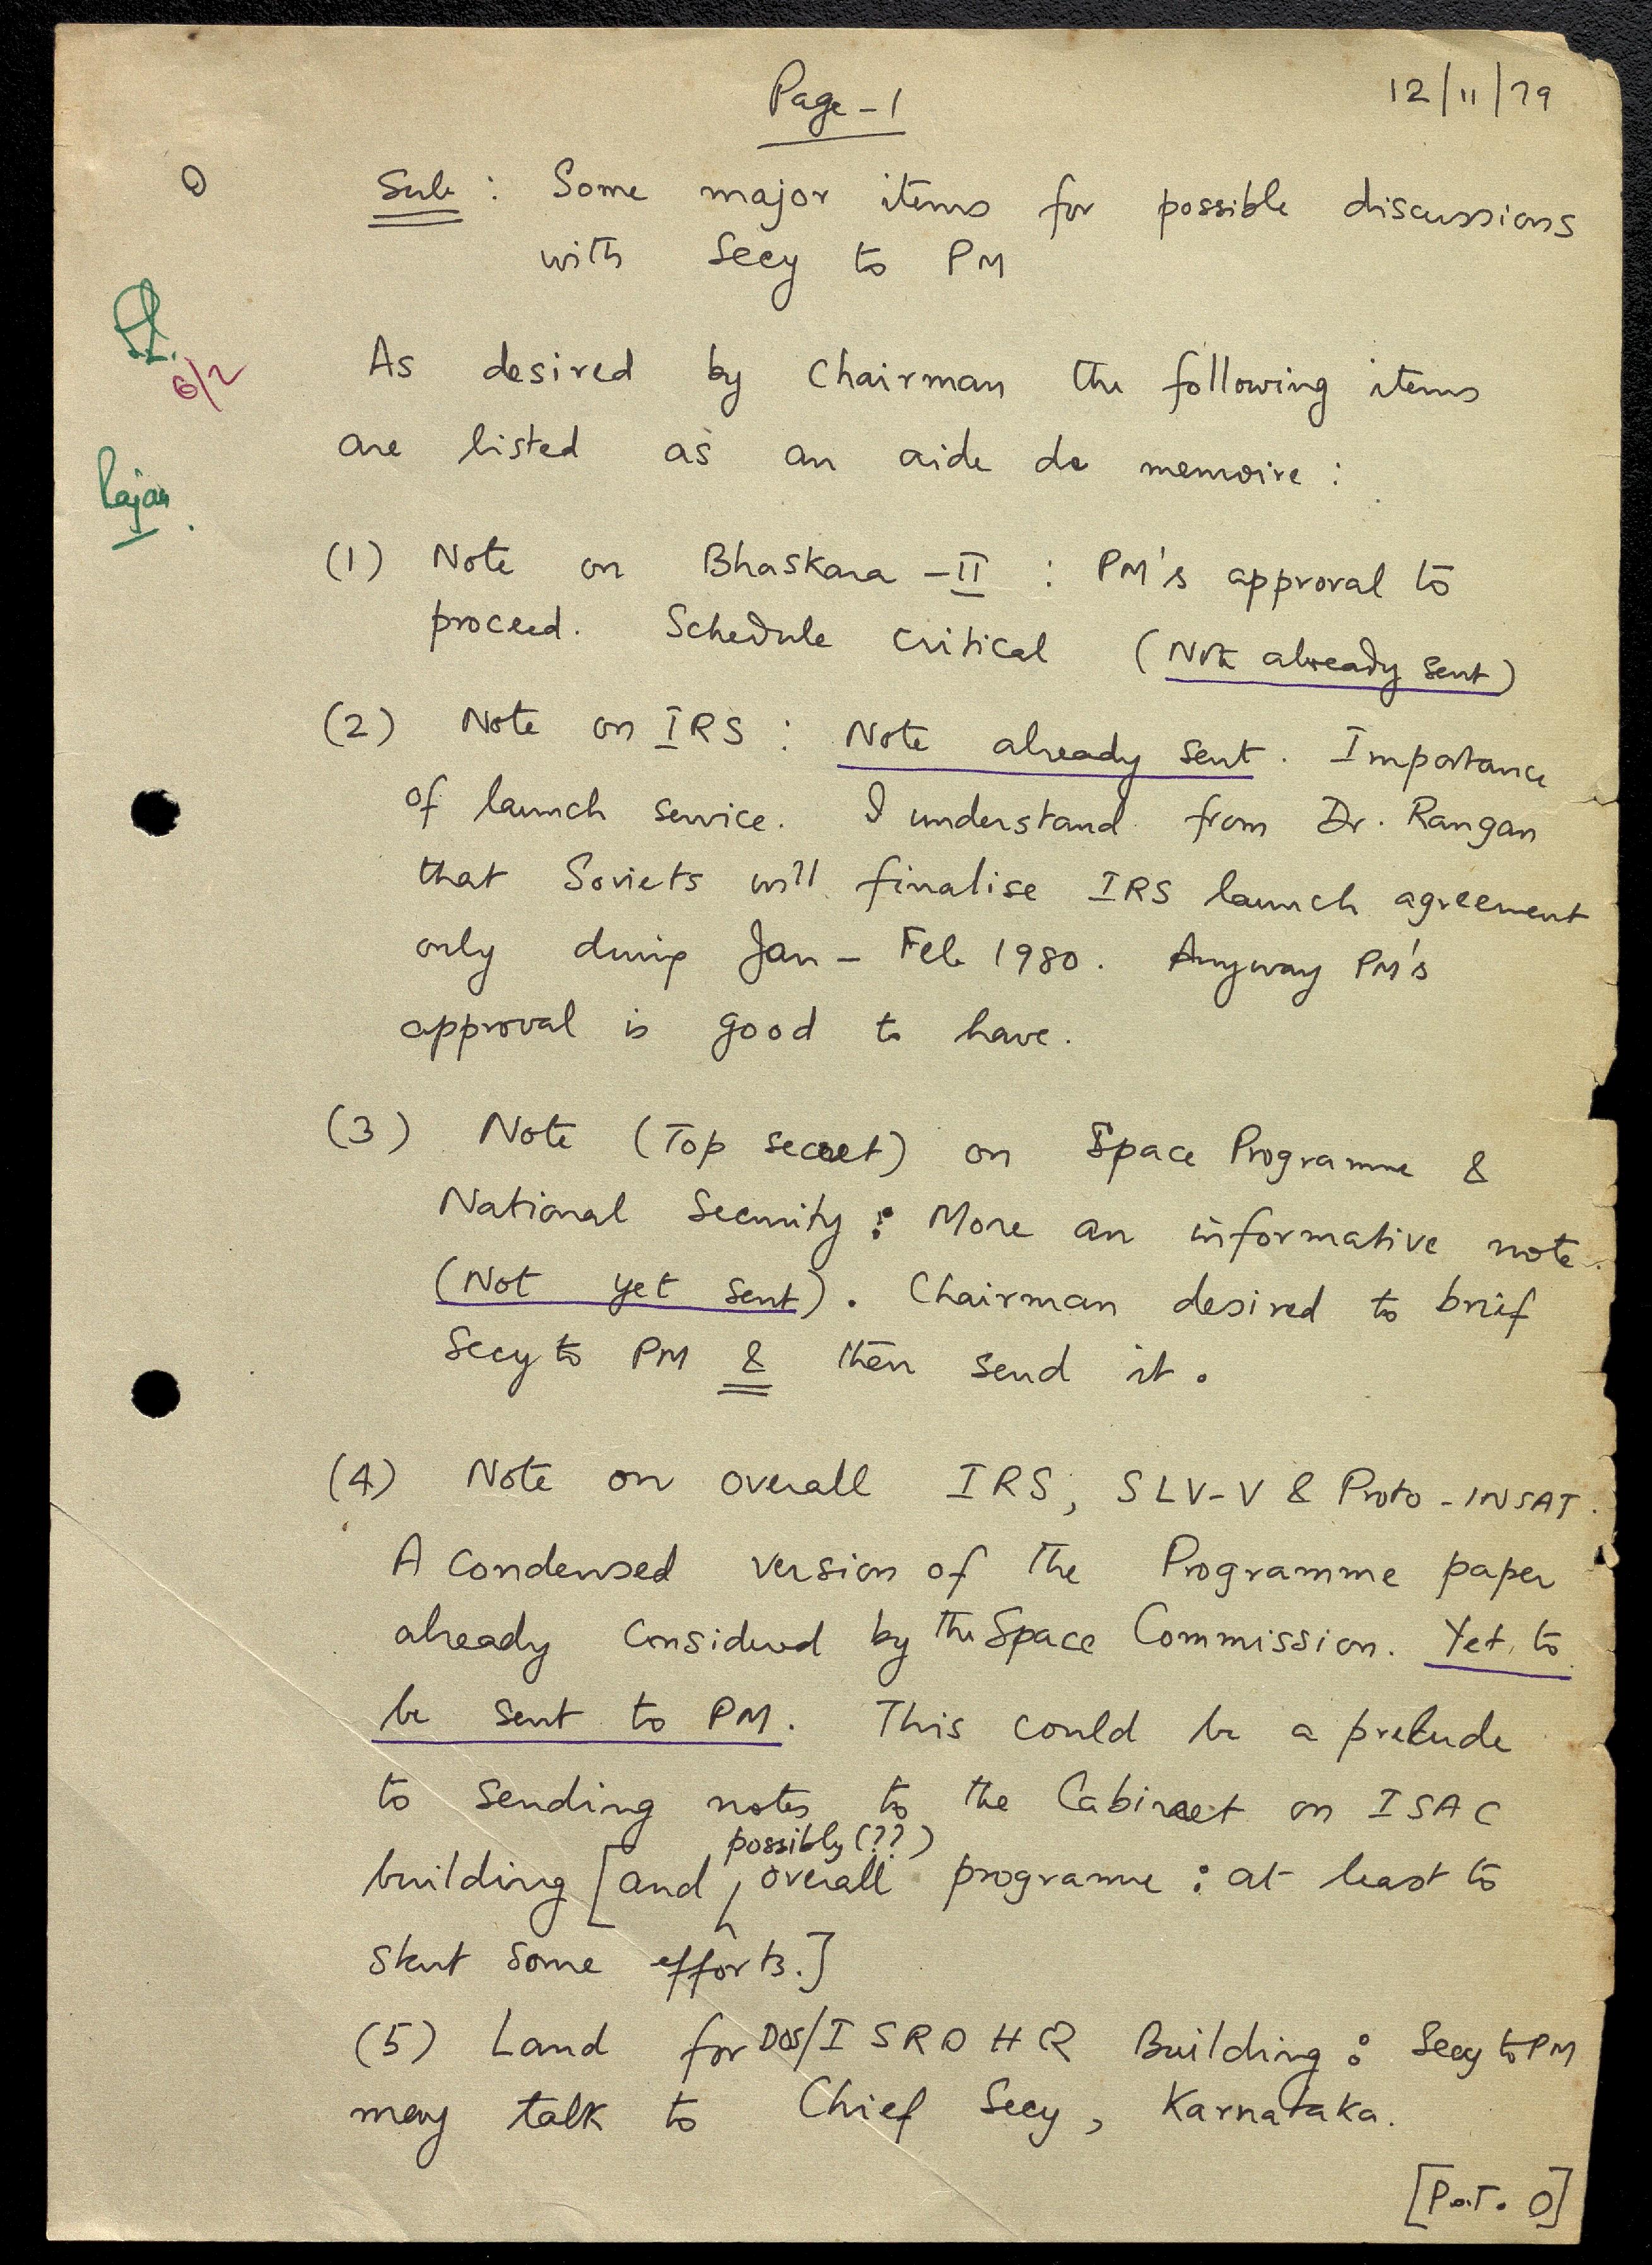 Page - 1
12/11/79
Sub : Some major items for possible discussions
with Secy to PM
6/2
As desired by Chairman the following items
are listed as an aide de memoire :
Rajan
(1) Note on Bhaskara - II : PM's approval to
proceed. Schedule critical (Note already sent)
(2) Note on IRS : Note already sent. Importance
of launch service. I understand from Dr. Rangan
that Soviets will finalise IRS launch agreement
only during Jan - Feb 1980. Anyway PM's
approval is good to have.
(3) Note (Top secret) on Space Programme &
National Security : More an informative note.
(Not yet sent). Chairman desired to brief
Secy to PM & then send it.
(4) Note on overall IRS, SLV-V & Proto-INSAT.
A condensed version of the Programme paper
already considered by the Space Commission. Yet to
be sent to PM. This could be a prelude
to sending notes to the Cabinet on ISAC
possibly (??)
building [and overall programme : at least to
start some efforts.]
(5) Land for DOS/ISRO HQ Building : Secy to PM
may talk to Chief Secy, Karnataka.
[P.T.O]